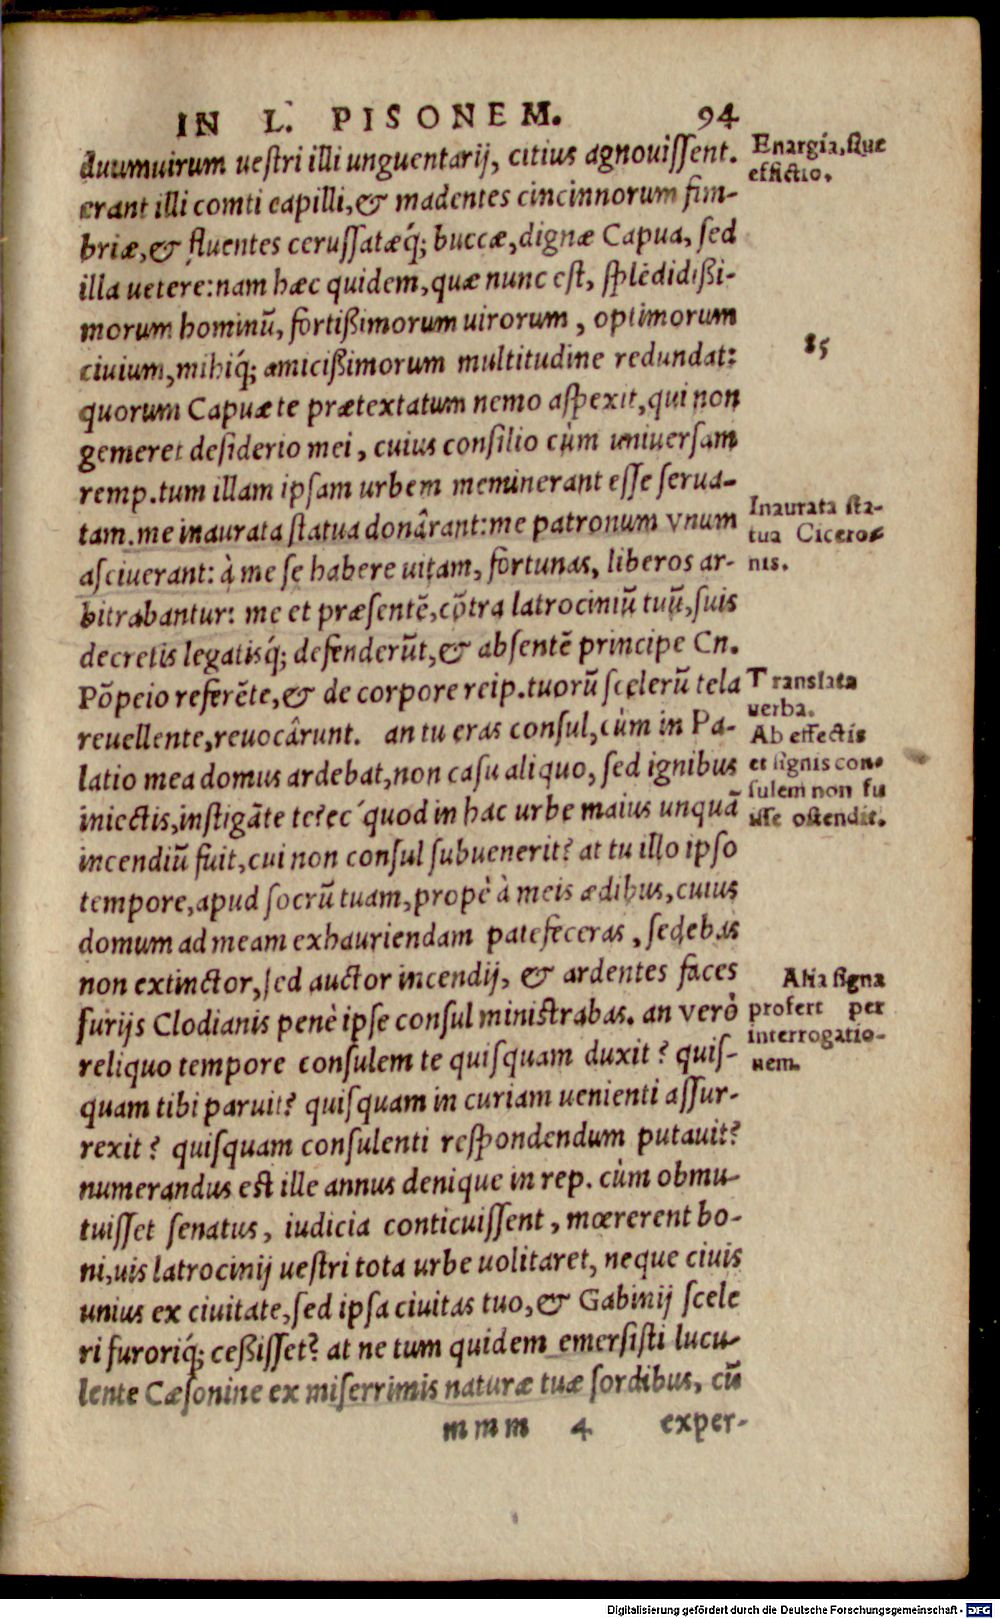 IN L. PISONEM. 94
duumuirum uestri illi unguentarij, citius agnouissent.
erant illi comti capilli, & madentes cincinnorum fim-
briæ, & fluentes cerussatæq́; buccæ, dignæ Capua, sed
illa uetere: nam hæc quidem, quæ nunc est, splēdidißi-
morum hominū, fortißimorum uirorum, optimorum
ciuium, mihiq́; amicißimorum multitudine redundat:
quorum Capuæ te prætextatum nemo aspexit, qui non
gemeret desiderio mei, cuius consilio cùm uniuersam
remp. tum illam ipsam urbem meminerant esse serua-
tam. me inaurata statua donârant: me patronum vnum
asciuerant: à me se habere uitam, fortunas, liberos ar-
bitrabantur: me et præsentē, cōtra latrociniū tuū, suis
decretis legatisq́; defenderūt, & absentē principe Cn.
Pōpeio referēte, & de corpore reip. tuorū scelerū tela
reuellente, reuocârunt. an tu eras consul, cùm in Pa-
latio mea domus ardebat, non casu aliquo, sed ignibus
iniectis, instigāte te? ec´quod in hac urbe maius unquā
incendiū fuit, cui non consul subuenerit? at tu illo ipso
tempore, apud socrū tuam, propè à meis ædibus, cuius
domum ad meam exhauriendam patefeceras, sedebas
non extinctor, sed auctor incendij, & ardentes faces
furijs Clodianis penè ipse consul ministrabas. an verò
reliquo tempore consulem te quisquam duxit? quis-
quam tibi paruit? quisquam in curiam uenienti assur-
rexit? quisquam consulenti respondendum putauit?
numerandus est ille annus denique in rep. cùm obmu-
tuisset senatus, iudicia conticuissent, mœrerent bo-
ni, uis latrocinij uestri tota urbe uolitaret, neque ciuis
unius ex ciuitate, sed ipsa ciuitas tuo, & Gabinij scele
ri furoriq́; ceßisset? at ne tum quidem emersisti lucu-
lente Cæsonine ex miserrimis naturæ tuæ sordibus, cū
mmm 4 exper-
Enargia, siue
effictio.
85
Inaurata sta-
tua Cicero-
nis.
Translata
uerba.
Ab effectis
et signis con-
sulem non fu
isse ostendit.
Alia signa
profert per
interrogatio-
nem.
Digitalisierung gefördert durch die Deutsche Forschungsgemeinschaft - DFG